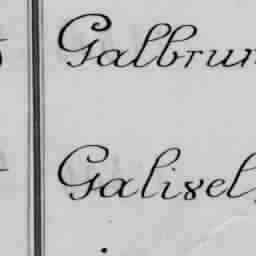 Galbrun
Galisel,